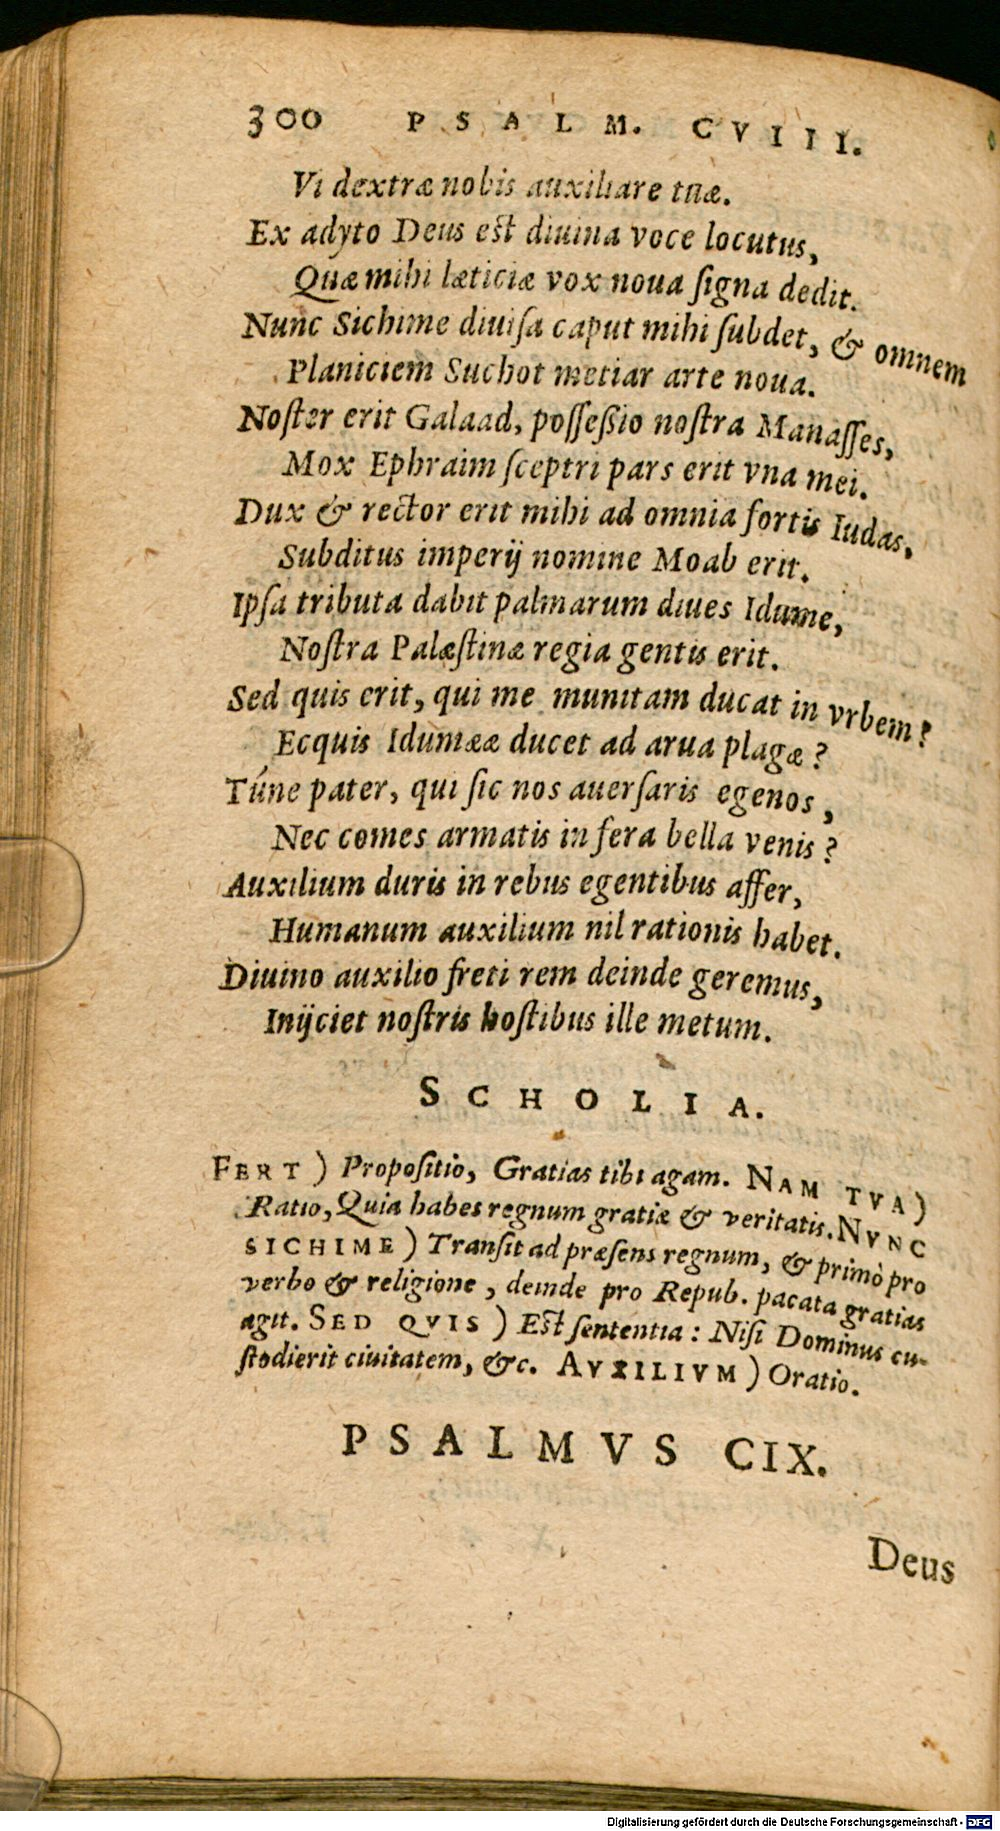 300 PSALM. CVIII.
Vi dextræ nobis auxiliare tuæ.
Ex adyto Deus est diuina voce locutus,
Quæ mihi læticiæ vox noua ſigna dedit.
Nunc Sichime diuiſa caput mihi ſubdet, & omnem
Planiciem Suchot metiar arte noua.
Noſter erit Galaad, poſſeſsio noſtra Manaſſes,
Mox Ephraim ſceptri pars erit vna mei.
Dux & rector erit mihi ad omnia fortis Iudas,
Subditus imperij nomine Moab erit.
Ipſa tributa dabit palmarum diues Idume,
Noſtra Palæſtinæ regia gentis erit.
Sed quis erit, qui me munitam ducat in vrbem?
Ecquis Idumææ ducet ad arua plagæ?
Túne pater, qui ſic nos auerſaris egenos,
Nec comes armatis in fera bella venis?
Auxilium duris in rebus egentibus affer,
Humanum auxilium nil rationis habet.
Diuino auxilio freti rem deinde geremus,
Inijciet noſtris hoſtibus ille metum.
SCHOLIA.
FERT) Propoſitio, Gratias tibi agam. NAM TVA)
Ratio, Quia habes regnum gratiæ & veritatis. NVNC
SICHIME) Tranſit ad præſens regnum, & primò pro
verbo & religione, deinde pro Repub. pacata gratias
agit. SED QVIS) Est ſententia: Niſi Dominus cu-
ſtodierit ciuitatem, &c. AVXILIVM) Oratio.
PSALMVS CIX.
Deus
Digitalisierung gefördert durch die Deutsche Forschungsgemeinschaft - DFG